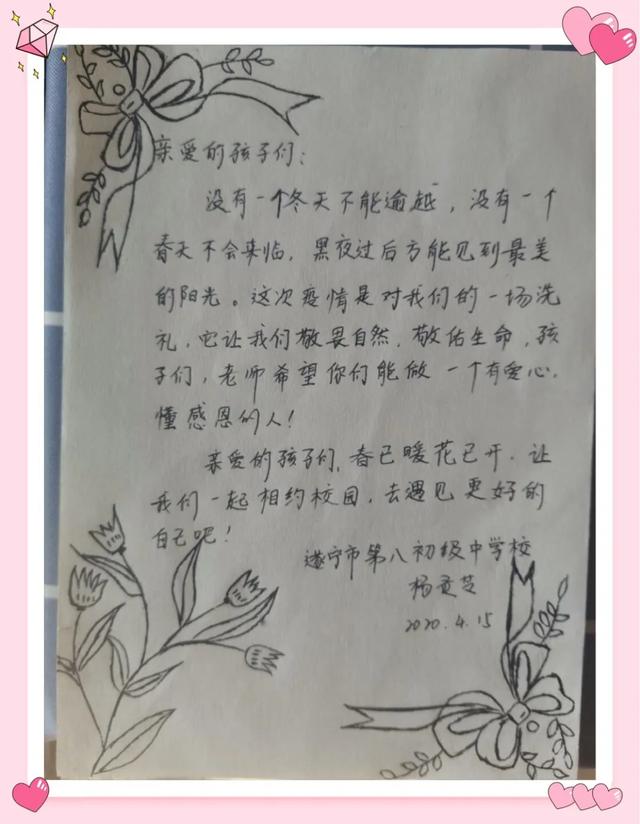 亲爱的孩子们：
没有一个冬天不能逾越，没有一个
春天不会来临，黑夜过后方能见到最美
的阳光。这次疫情是对我们的一场洗
礼，它让我们敬畏自然，敬佑生命，孩
子们，老师希望你们能做一个有爱心，
懂感恩的人！
亲爱的孩子们，春已暖花已开，让
我们一起相约校园，去遇见更好的
自己吧！
遂宁市第八初级中学校
杨 芝
2020.4.15